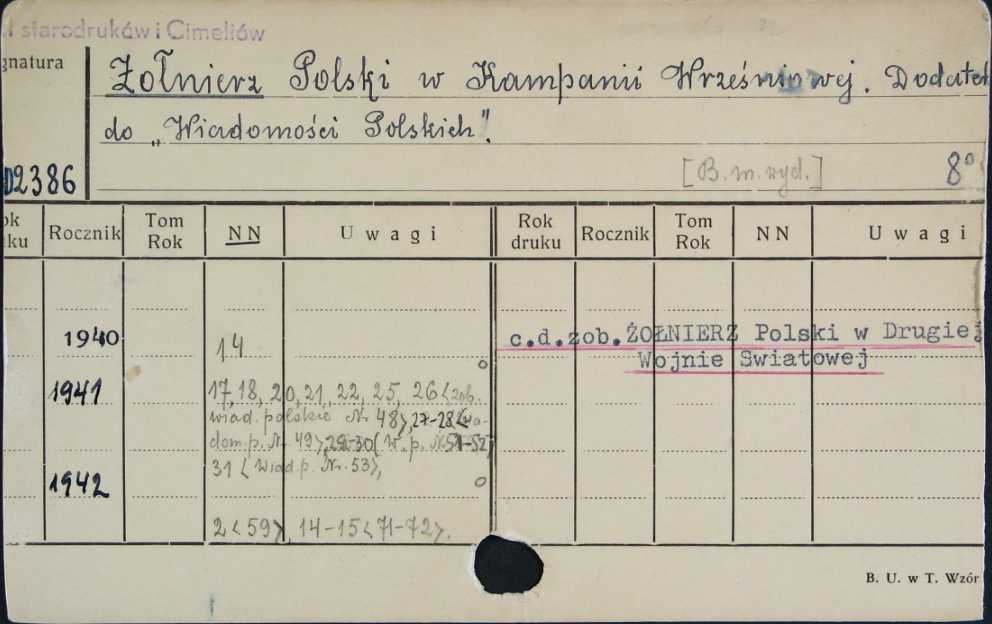 starodruków i Cimeliów
gnatura
Żołnierz Polski w Kampanii Wrześniowej. Dodatek
do „Wiadomości Polskich”.
02386
[B. m. wyd.]
8°
ok
ku
Rocznik
Tom
Rok
NN
Uwagi
Rok
druku
Rocznik
Tom
Rok
NN
Uwagi
1940
14
c.d.zob.ŻOŁNIERZ Polski w Drugiej
Wojnie Swiatowej
1941
17, 18, 20, 21, 22, 25, 26 <zob.
wiad. polskie Nr 48>, 27-28 <wia-
dom. p. Nr. 49>, 29-30 (W. p. Nr 51-52)
31 <Wiad. p. Nr. 53>,
1942
2 <59>, 14-15 <71-72>.
B. U. w T. Wzór